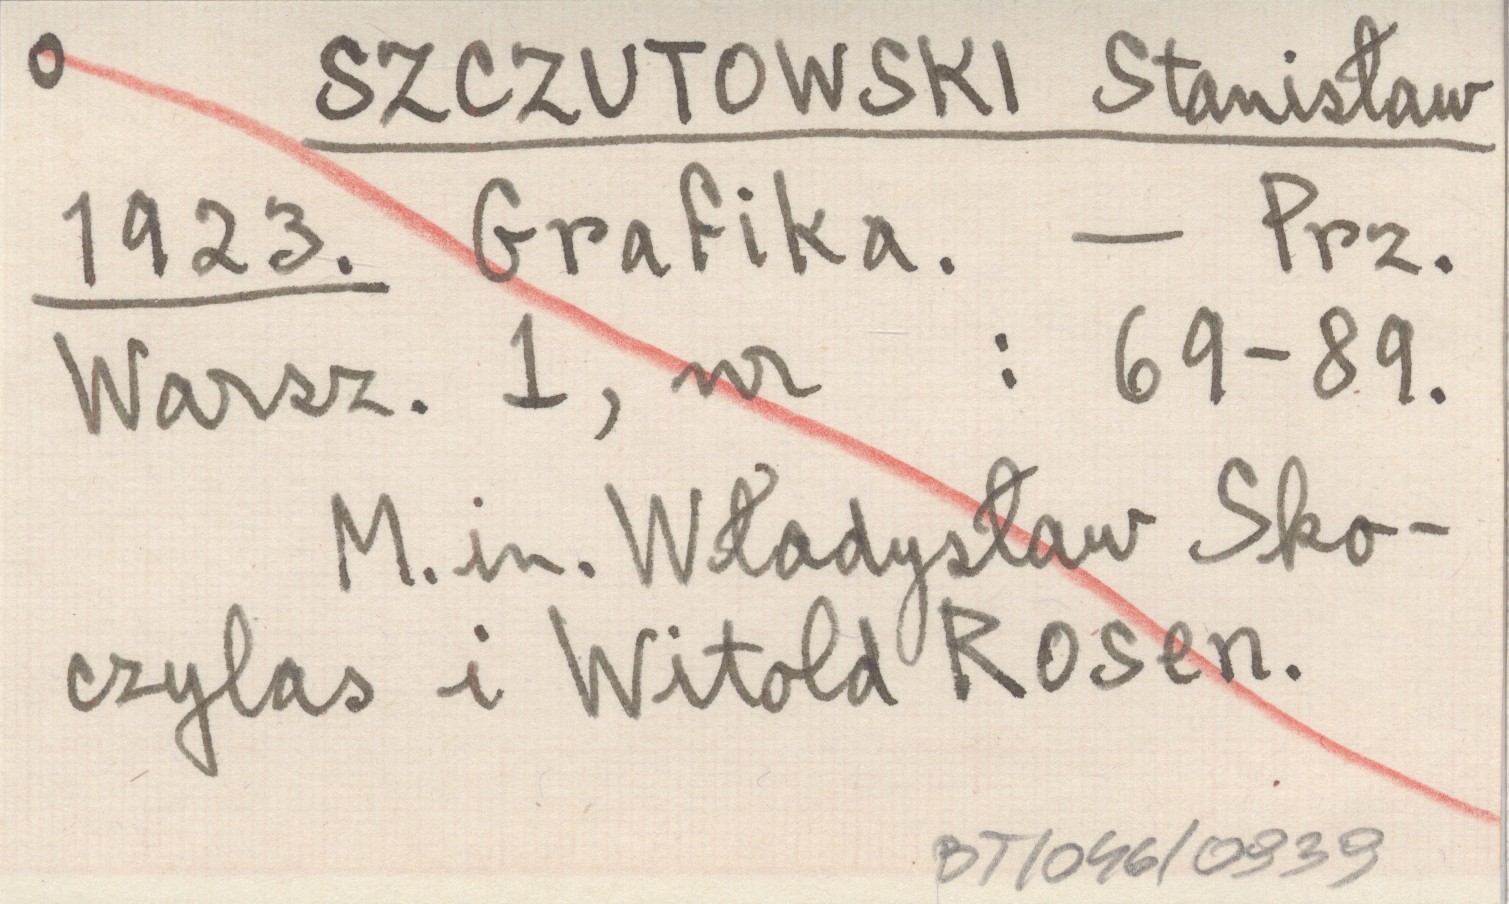 o SZCZUTOWSKI Stanisław
1923. Grafika. — Prz.
Warsz. 1, nr : 69-89.
M.in. Władysław Sko-
czylas i Witold Rosen.
BT/046/0939